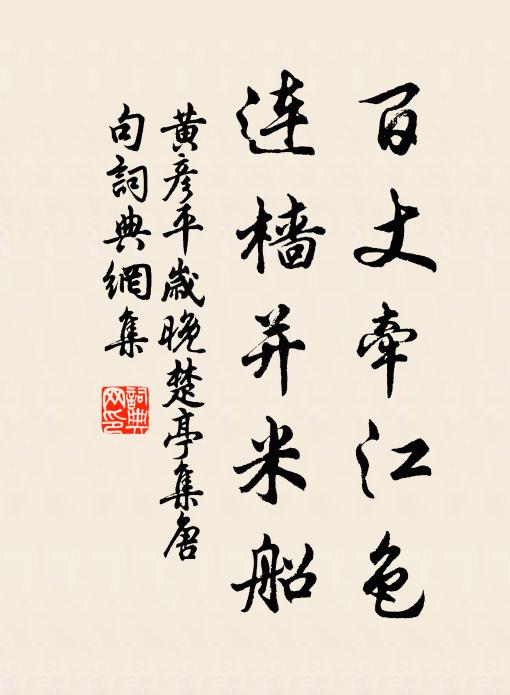 百丈牵江色
连樯并米船
黄彦平歲晚楚亭集唐
句詞典網集
詞典网印